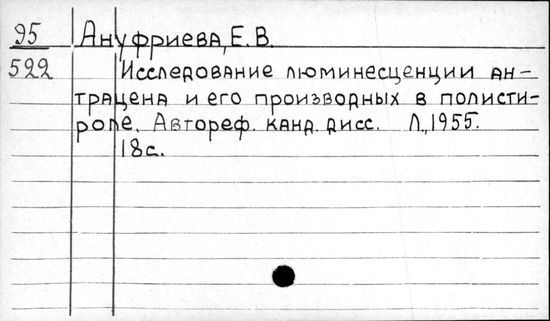 95 Ануфриева, Е. В.
522 Исследование люминесценции ан-
трацена и его производных в полисти-
роле. Автореф. канд. дисс. Л., 1955.
18с.